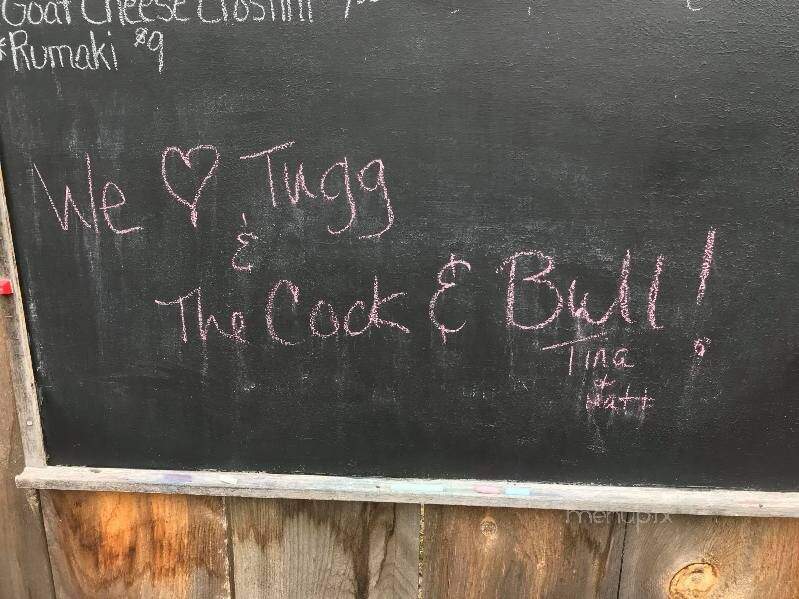 Goat Cheese Crostini
*Rumaki $9
We ♡ Tugg
&
The Cock & Bull!
Tina
+
Matt
menupix